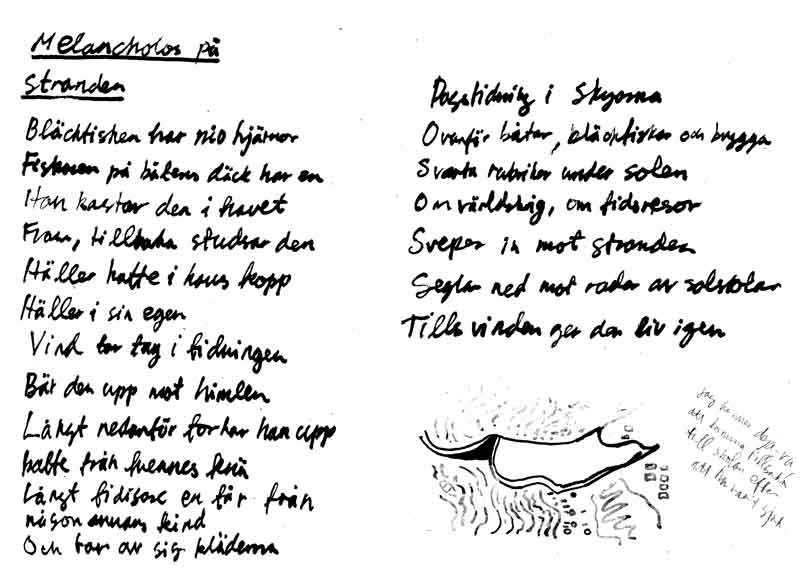 Melancholos på
stranden
Bläckfisken har nio hjärnor
Fiskaren på båtens däck har en
Han kastar den i havet
Fram, tillbaka studsar den
Häller kaffe i hans kopp
Häller i sin egen
Vind tar tag i tidningen
Bär den upp mot himlen
Långt nedanför torkar han upp
kaffe från hennes knä
Långt tidigare en tår från
någon annans kind
Och tar av sig kläderna
Dagstidning i skyarna
Ovanför båtar, bläckfiskar och brygga
Svarta rubriker under solen
Om världskrig, om tidsresor
Sveper in mot stranden
Seglar ned mot rader av solstolar
Tills vinden ger den liv igen
Jag känner deja-vu
att komma tillbaka
till skolan efter
att ha varit sjuk